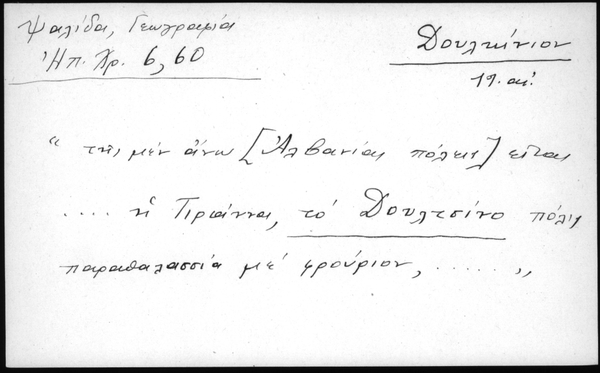 Ψαλίδα, Γεωγραφία
Ἠπ. Χρ. 6, 60
Δουλκίνιον
19. αἰ.
"τῆς μὲν ἄνω [Ἀλβανίας πόλεις] εἶναι
.... ἡ Τιράννα, τὸ Δουλτσίνο πόλις
παραθαλασσία μὲ φρούριον, ...... "